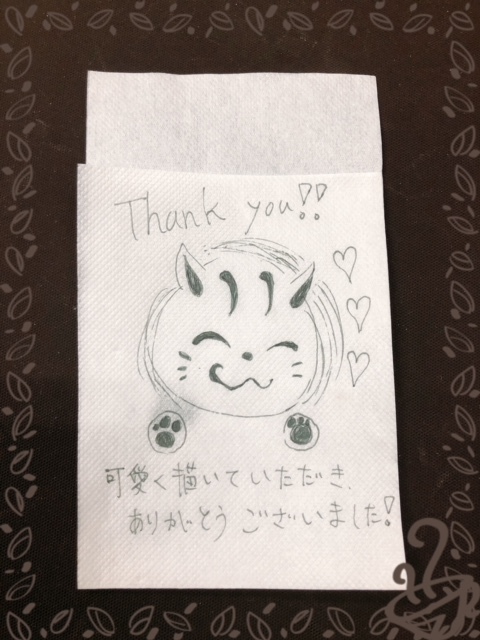 Thank you!!
可愛く描いていただき、
ありがとうございました!